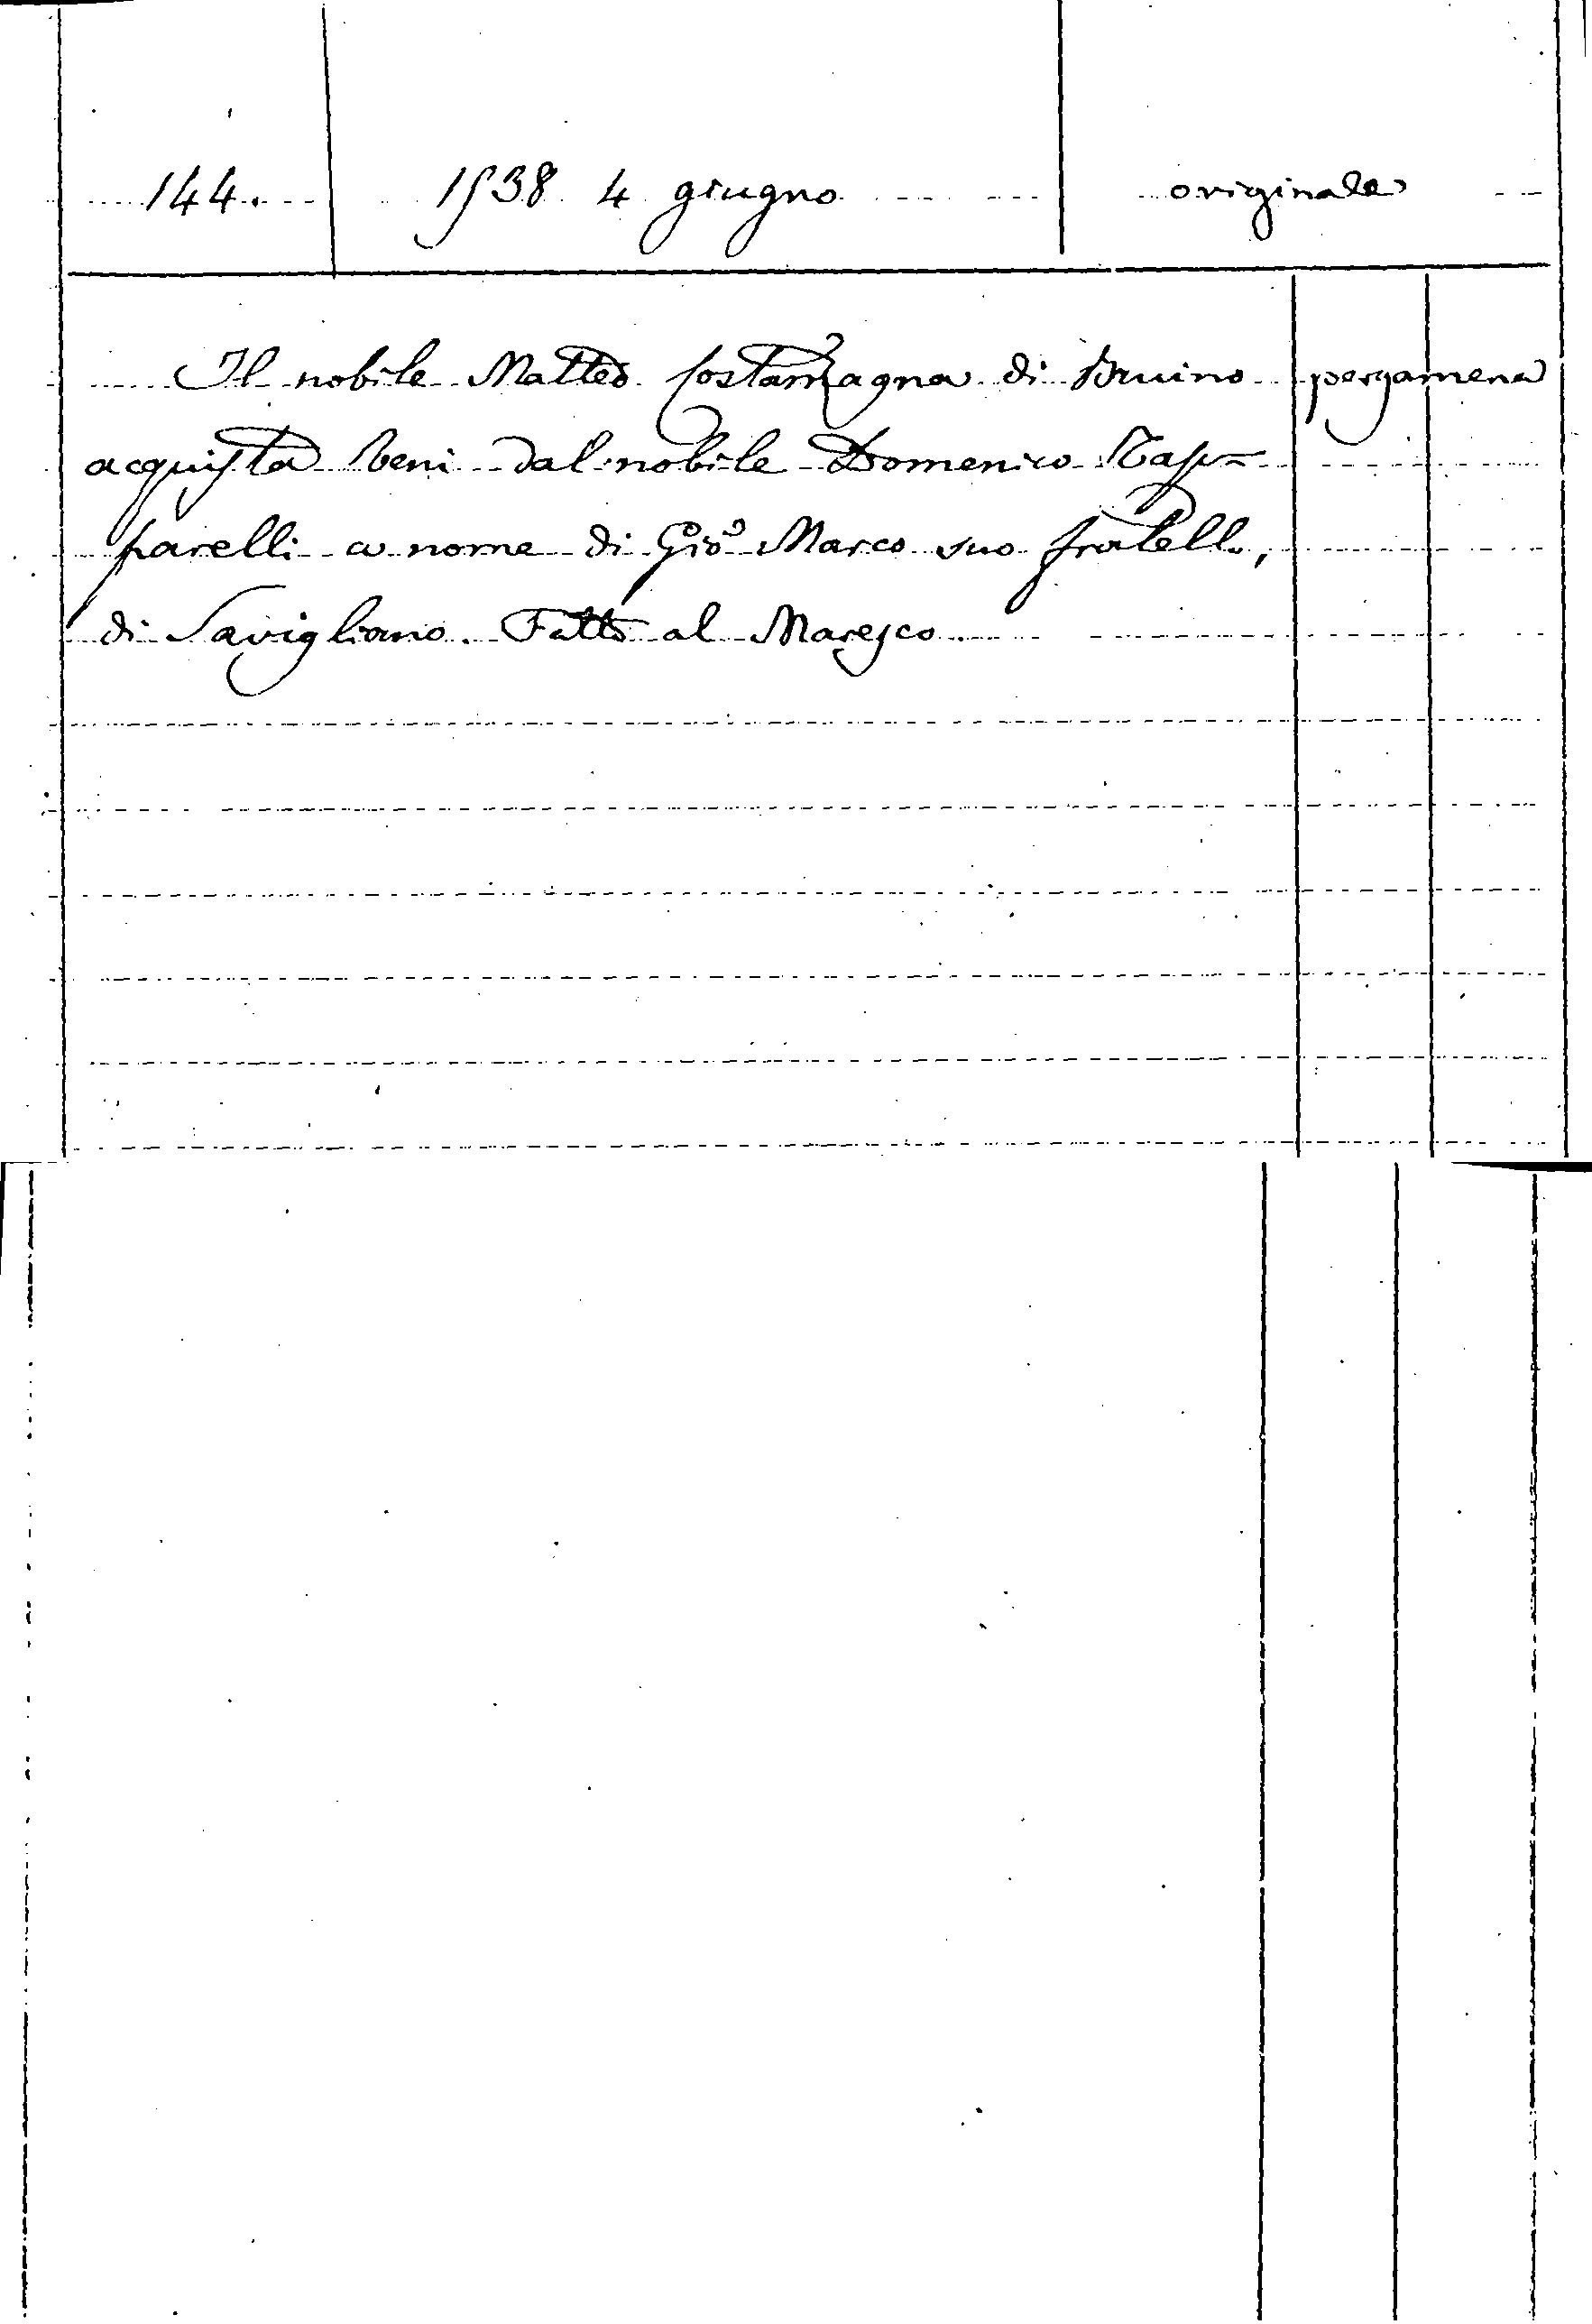 144. 1538 4 giugno originale
Il nobile Matteo Costamagna di Bruino pergamena
acquista beni dal nobile Domenico Tap=
parelli a nome di Gio Marco suo fratello,
di Savigliano. Fatto al Maresco